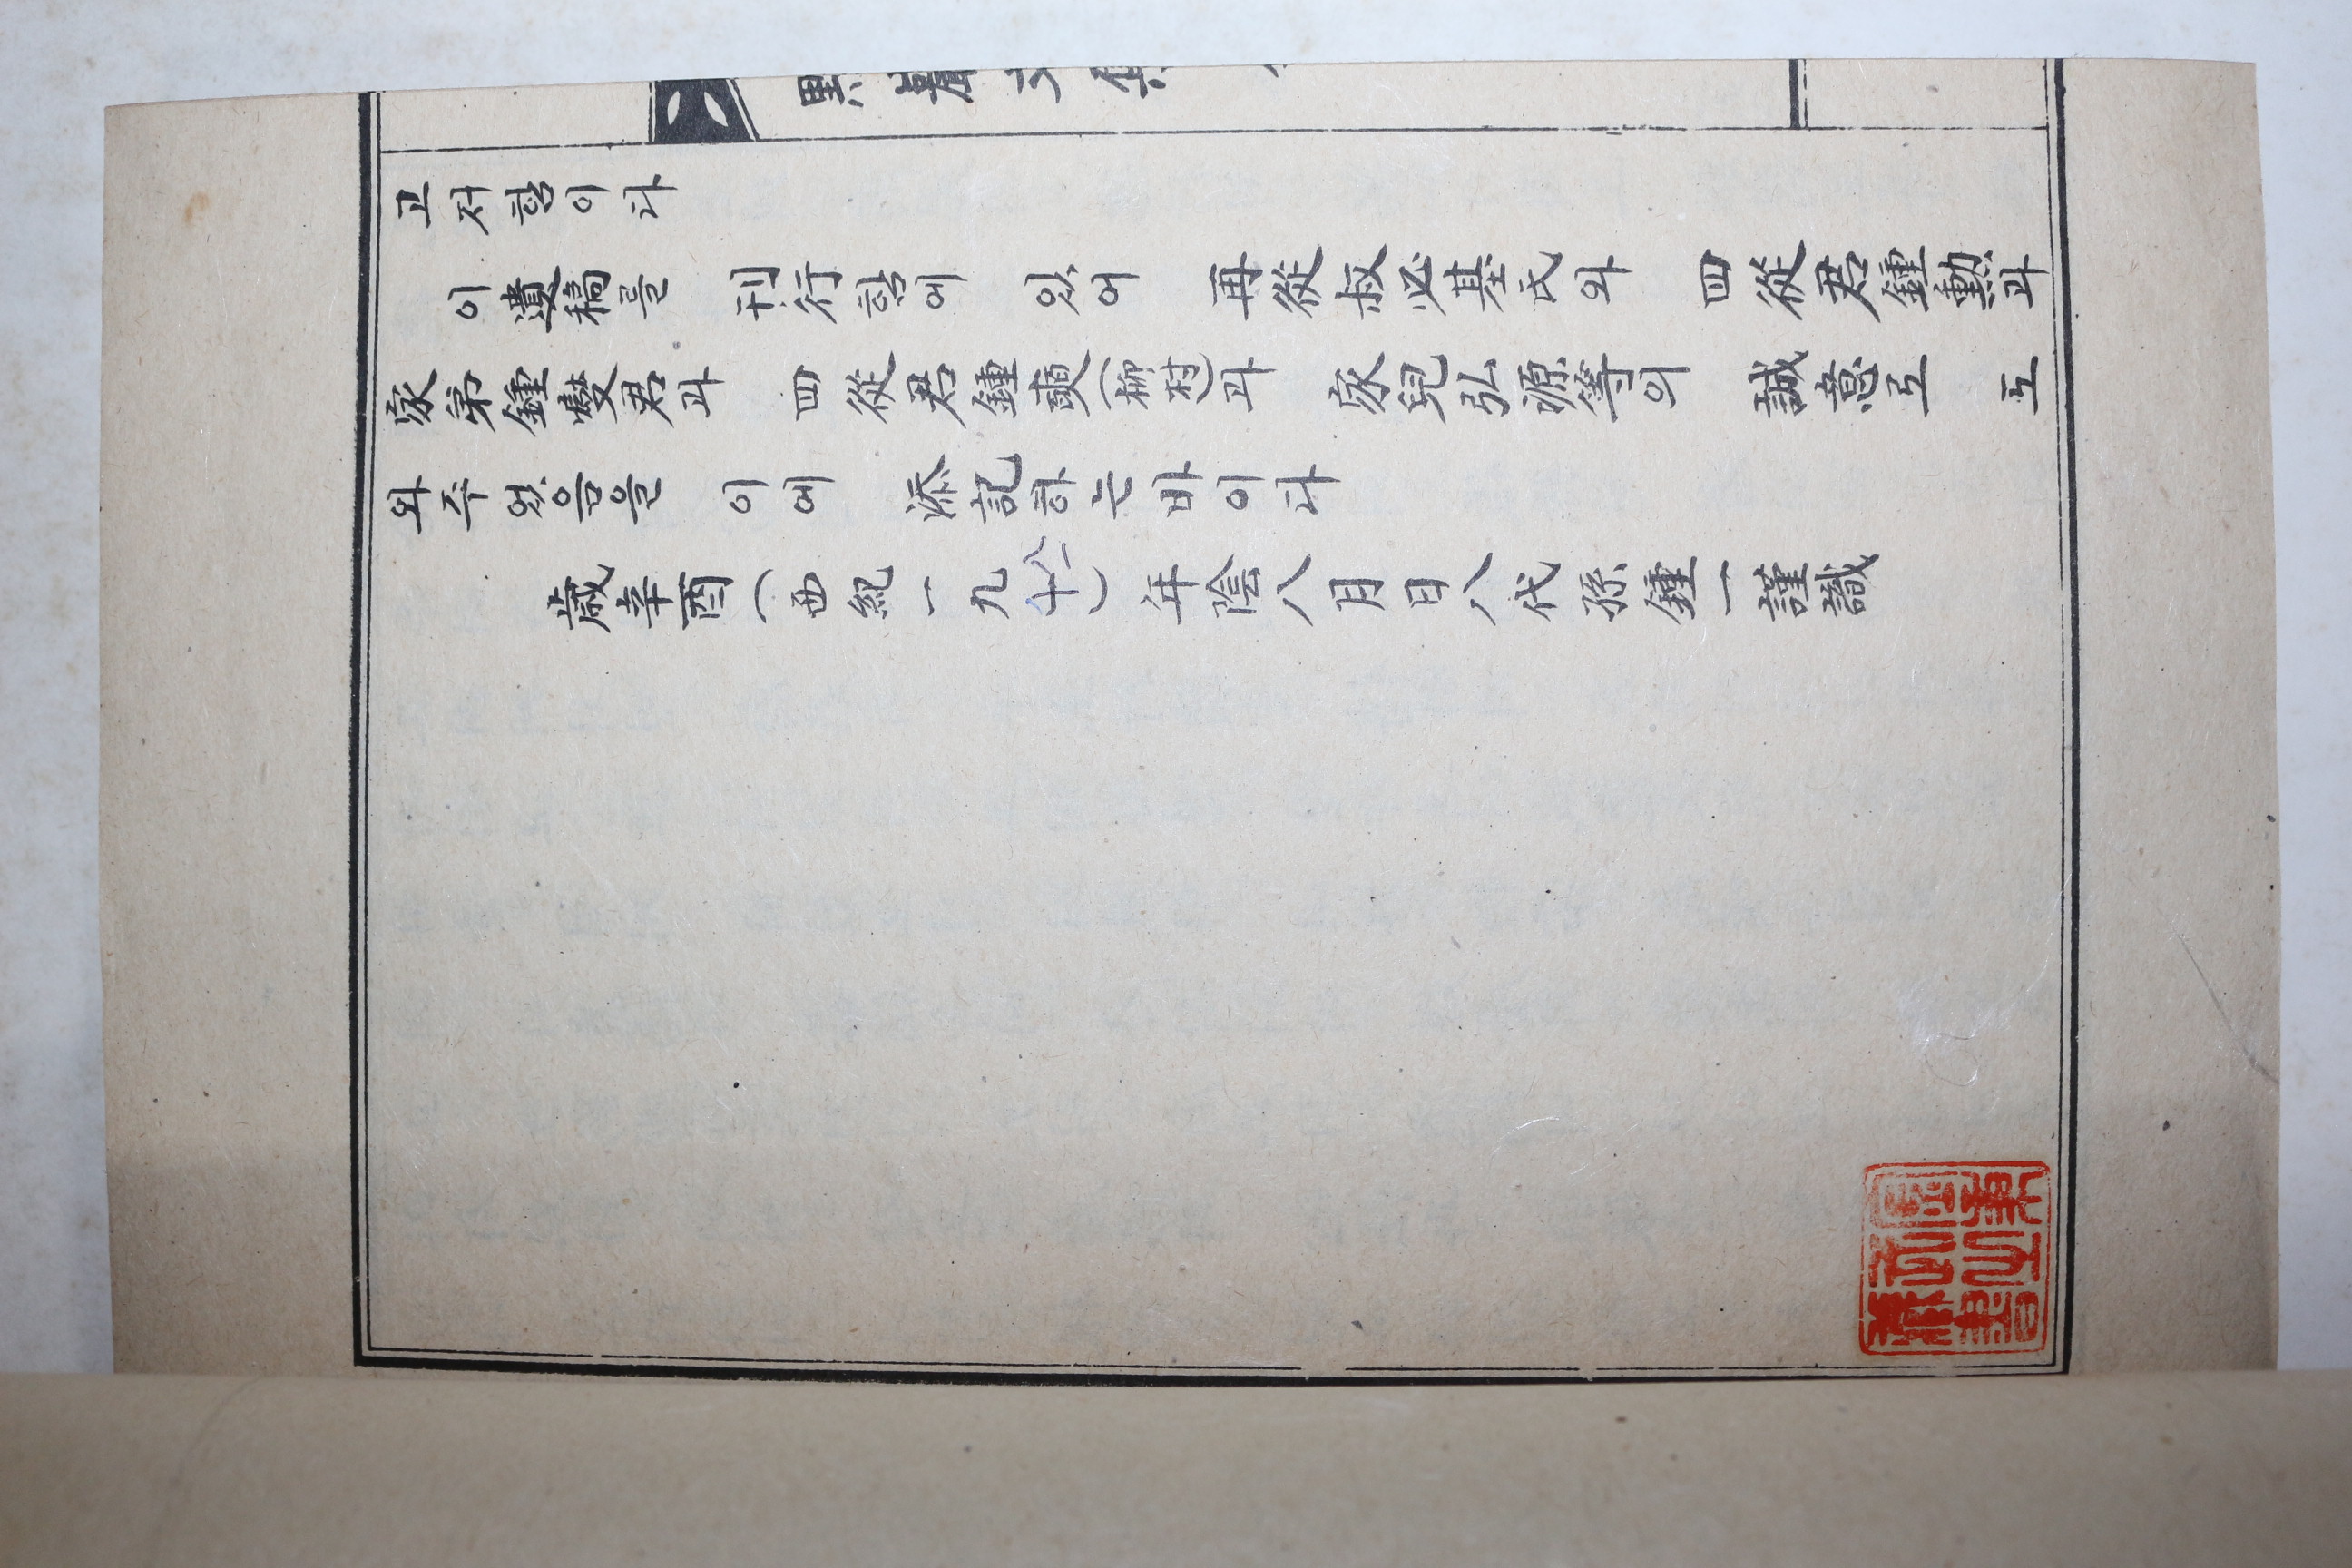 고저함이다
이遺稿를 刊行함에 있어 再從叔必基氏와 四從君鍾勳과
家弟鍾燮君과 四從君鍾奭(柳村)과 家兒弘源等의 誠意로 도
와주었음을 이에 添記하는바이다
歲辛酉(西紀一九八一)年陰八月日八代孫鍾一謹識
文集
藏書